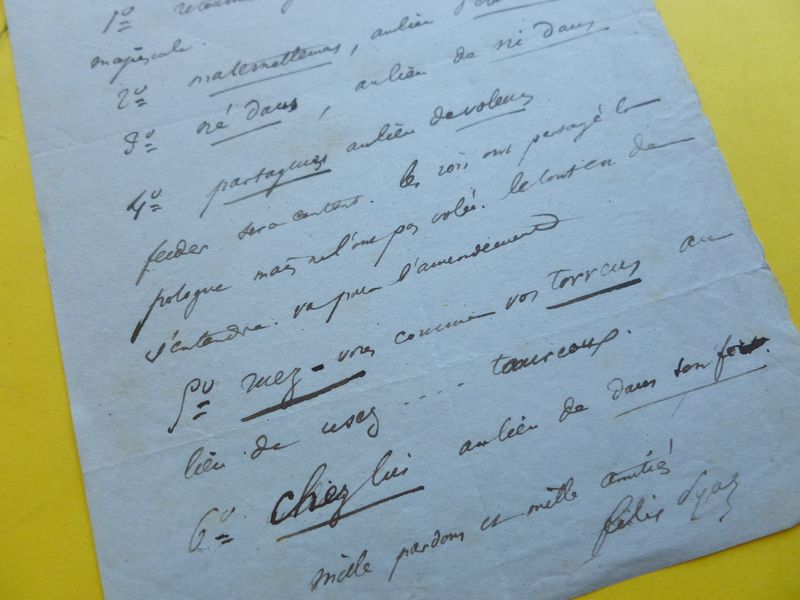 1º
majuscule.
2º maternellemas, au lieu
3º né dans, au lieu de ni dans
4º partageurs au lieu de voleurs
feeder sera content. les rois ont partagé la
pologne mais ne l'ont pas volée. le tout est de
s'entendre. va pour l'amendement
5º ruez-vous comme vos torreaus au
lieu de usez .... taureaux.
6º chez lui au lieu de dans son for.
mille pardons et mille amitiés
félix Pyat